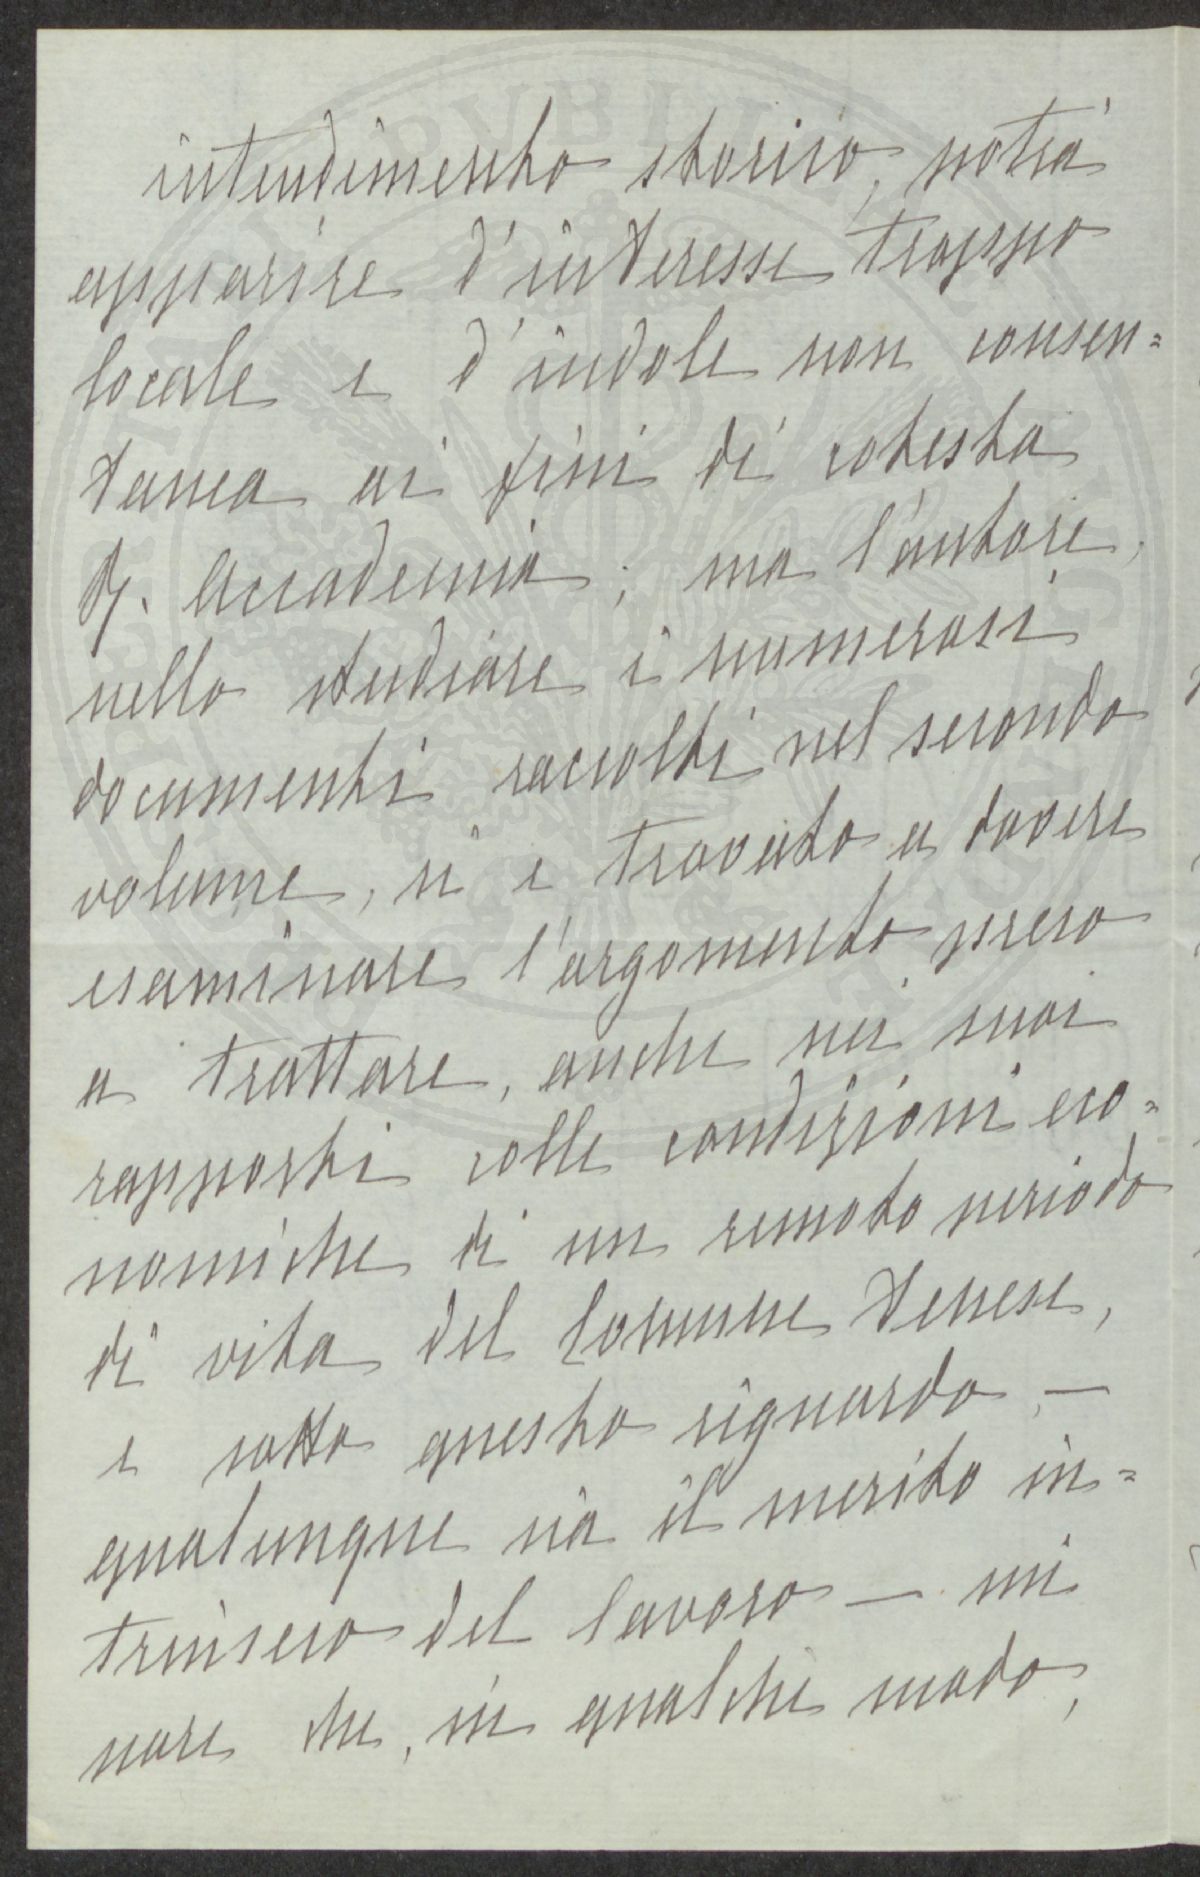 intendimento storico, potrà
apparire d'interesse troppo
locale e d'indole non consen=
tanea ai fini di cotesta
R. Accademia; ma l'autore,
nello studiare i numerosi
documenti raccolti nel secondo
volume, si è trovato a dovere
esaminare l'argomento preso
a trattare, anche nei suoi
rapporti colle condizioni eco=
nomiche di un remoto periodo
di vita del Comune senese,
e sotto questo riguardo, —
qualunque sia il merito in=
trinseco del lavoro — mi
pare che, in qualche modo,